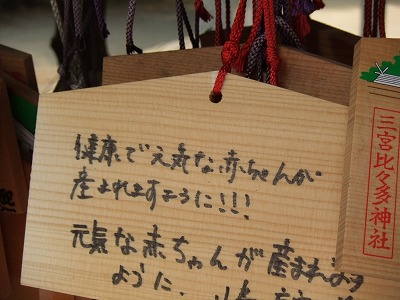 健康で元気な赤ちゃんが
産まれますように!!!
元気な赤ちゃんが産まれます
ように、
三宮比々多神社